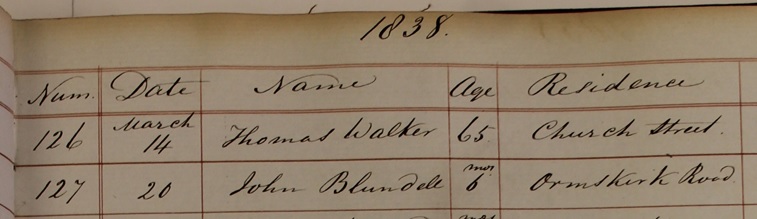 1838.
Num. Date Name Age Residence
126 March 14 Thomas Walker 65 Church Street.
mos
127 20 John Blundell 6 Ormskirk Road